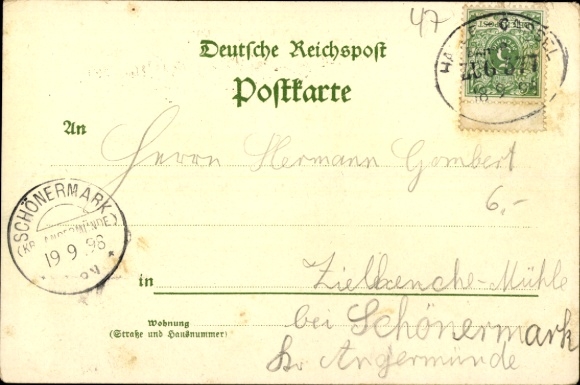 47
Deutsche Reichspost
Postkarte
An
Herrn Hermann Gombert
6,-
SCHÖNERMARK
(KR. ANGERMÜNDE)
19 9 98
in
Mühle
bei Schönermark
Kr Angermünde
Wohnung
(Straße und Hausnummer)
ZUG 377
18 9 98